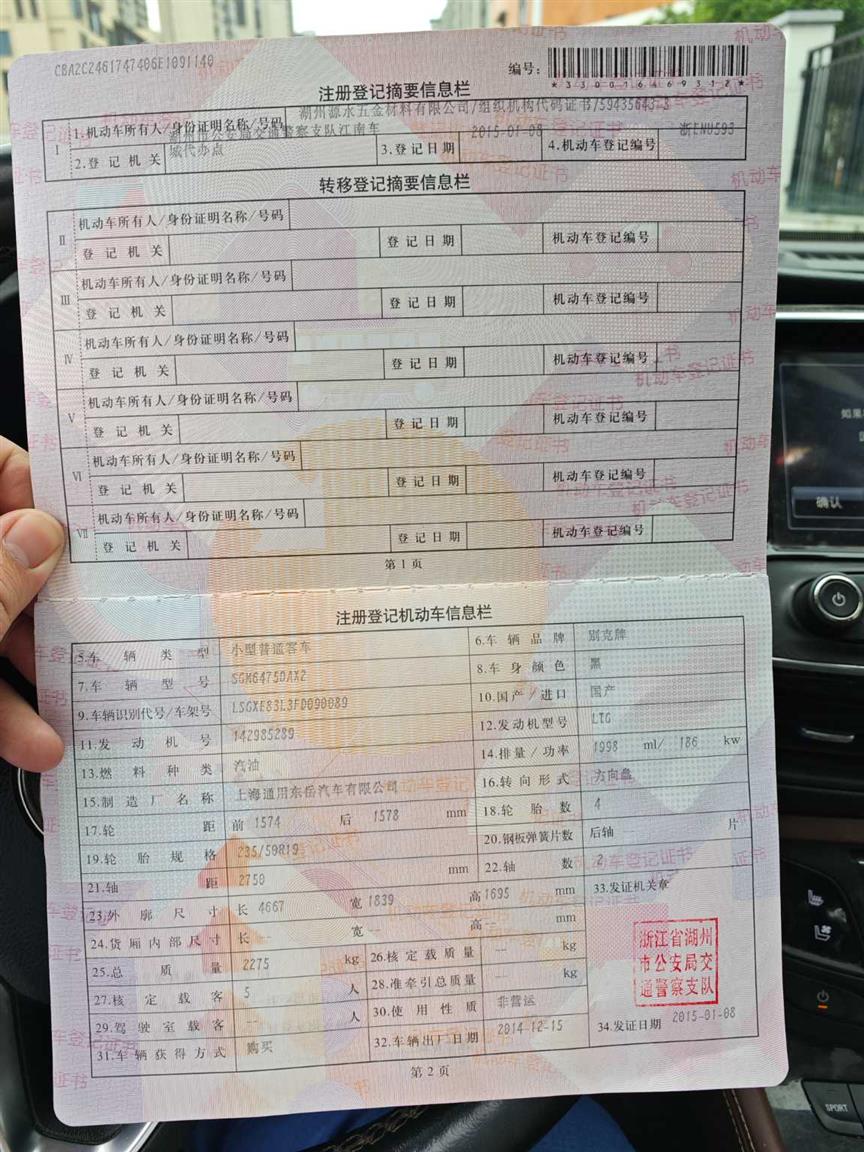 CBA2C2461747406E1091140
编号：
*330016469312*
注册登记摘要信息栏
I 1.机动车所有人/身份证明名称/号码 湖州源水五金材料有限公司/组织机构代码证书/59435643-3
2.登记机关 湖州市公安局交通警察支队江南车城代办点 3.登记日期 2015-01-08 4.机动车登记编号 浙ENU593
转移登记摘要信息栏
II 机动车所有人/身份证明名称/号码
登记机关 登记日期 机动车登记编号
III 机动车所有人/身份证明名称/号码
登记机关 登记日期 机动车登记编号
IV 机动车所有人/身份证明名称/号码
登记机关 登记日期 机动车登记编号
V 机动车所有人/身份证明名称/号码
登记机关 登记日期 机动车登记编号
VI 机动车所有人/身份证明名称/号码
登记机关 登记日期 机动车登记编号
VII 机动车所有人/身份证明名称/号码
登记机关 登记日期 机动车登记编号
第1页
注册登记机动车信息栏
5.车辆类型 小型普通客车 6.车辆品牌 别克牌
7.车辆型号 SGM6475DAX2 8.车身颜色 黑
9.车辆识别代号/车架号 LSGXE83L3FD090089 10.国产/进口 国产
11.发动机号 142985289 12.发动机型号 LTG
13.燃料种类 汽油 14.排量/功率 1998 ml/ 186 kw
15.制造厂名称 上海通用东岳汽车有限公司 16.转向形式 方向盘
17.轮距 前 1574 后 1578 mm 18.轮胎数 4
19.轮胎规格 235/50R19 20.钢板弹簧片数 后轴 片
21.轴距 2750 mm 22.轴数 2
23.外廓尺寸 长 4667 宽 1839 高 1695 mm 33.发证机关章
24.货厢内部尺寸 长 -- 宽 -- 高 -- mm
浙江省湖州
市公安局交
通警察支队
25.总质量 2275 kg 26.核定载质量 -- kg
27.核定载客 5 人 28.准牵引总质量 -- kg
29.驾驶室载客 -- 人 30.使用性质 非营运
31.车辆获得方式 购买 32.车辆出厂日期 2014-12-15 34.发证日期 2015-01-08
第2页
确认
SPORT